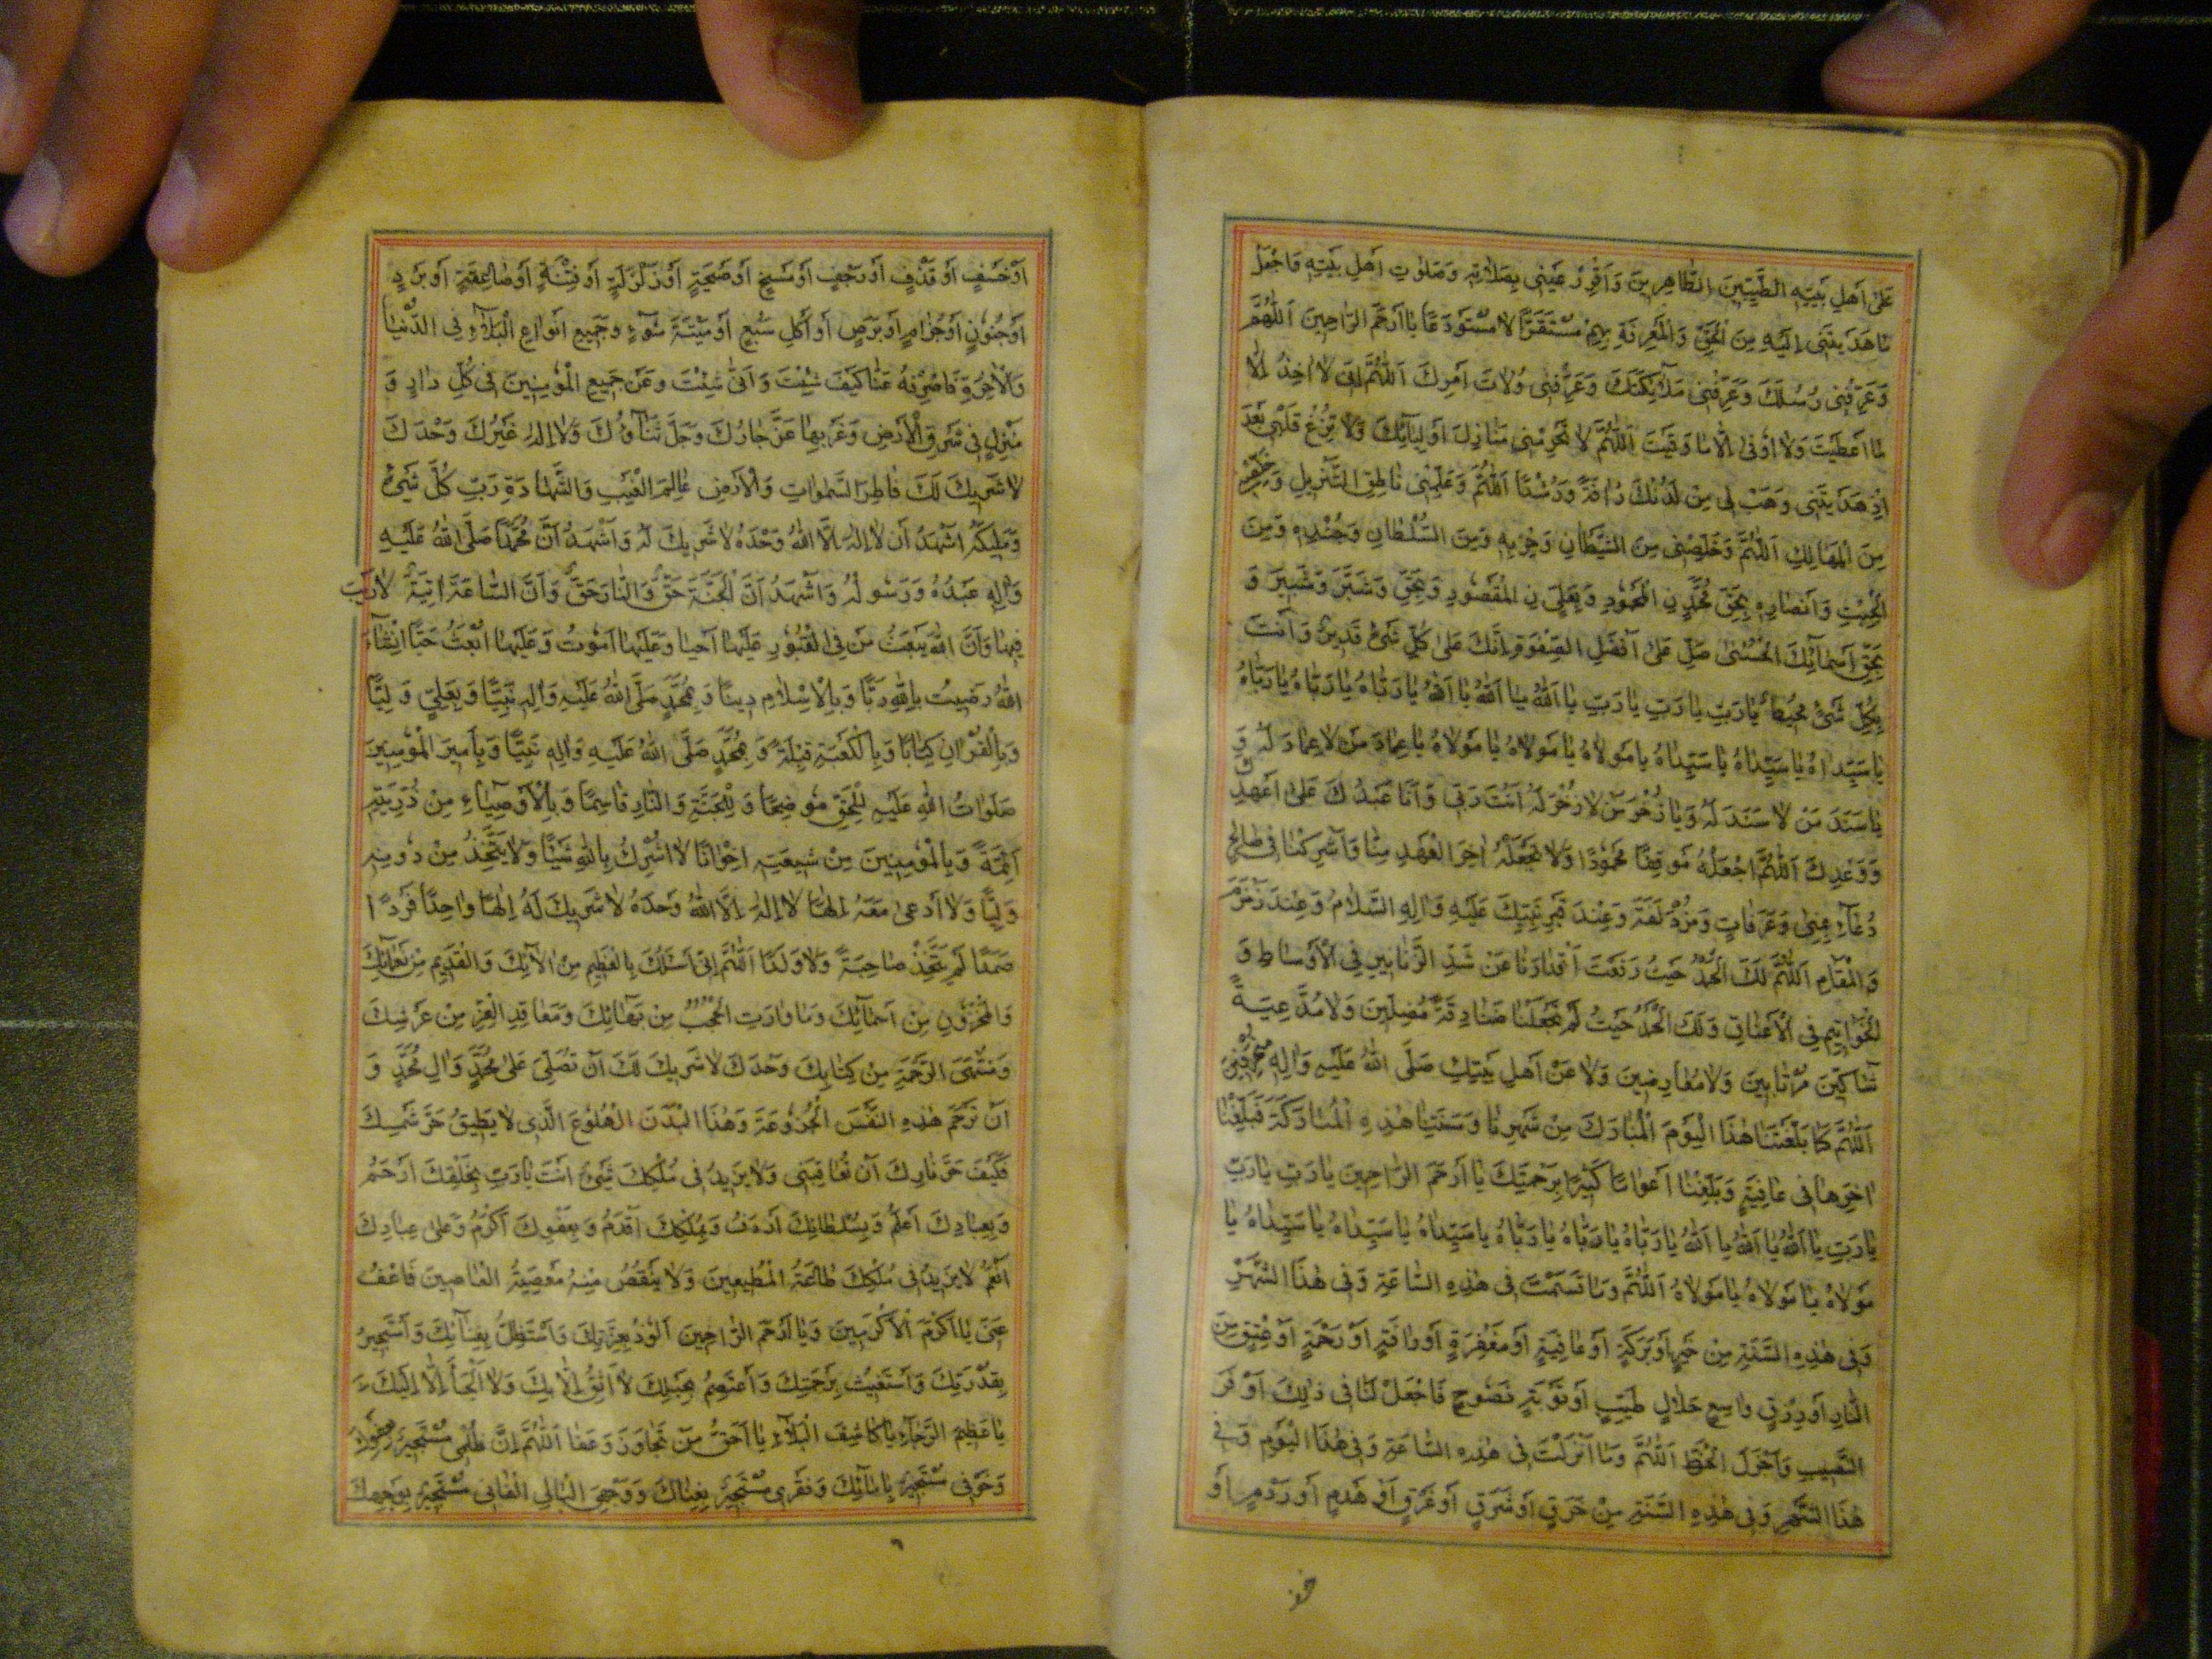 عَلىٰ اَهلِ بَيتِهِ الطَّيِّبِينَ الطّاهِرِينَ وَاَقْرِرْ عَيْنى بِصَلاتِهِ وَصَلوٰتِ اَهلِ بَيتِهِ وَاجْعَلْ
مٰا هَدَيتَنى اِلَيْهِ مِنَ الْحَقِّ وَالْمَعرِفَةِ بِهِمْ مُسْتَقَرًّا لا مُسْتَودَعًا يٰا اَرْحَمَ الرّاحِمينَ اَللّٰهُمَّ
وَعَرِّفْنى رُسُلَكَ وَعَرِّفنى مَلآئِكَتَكَ وَعَرِّفْنى وُلاتَ اَمرِكَ اَللّٰهُمَّ اِنّى لا اٰخِذُ اِلّا
مٰا اَعطَيْتَ وَلا اُوقىٰ اِلّا مٰا وَقَيتَ اَللّٰهُمَّ لا تَحْرِمْنى مَنٰازِلَ اَولِيٰآئِكَ وَلا تُزِغْ قَلبى بَعدَ
اِذْ هَدَيتَنى وَهَبْ لى مِنْ لَدُنْكَ رَافَةً وَرُشْدًا اَللّٰهُمَّ وَعَلِّمنى نٰاطِقَ التَّنْزيلِ وَخَلِّصْنى
مِنَ الْمَهٰالِكِ اَللّٰهُمَّ وَخَلِّصْنى مِنَ الشَّيْطٰانِ وَحِزْبِهِ وَمِنَ السُّلْطٰانِ وَجُنْدِهِ وَمِنَ
الْجِبْتِ وَاَنصٰارِهِ بِحَقِّ مُحَمَّدٍ نِ الْمَحْمُودِ وَبِعَلِىٍّ نِ الْمَقْصُودِ وَبِحَقِّ وَشَبَّرَ وَشَبيرَ وَ
بِحَقِّ اَسمٰآئِكَ الْحُسْنىٰ صَلِّ عَلىٰ اَفْضَلِ الصَّفْوَةِ اِنَّكَ عَلىٰ كُلِّ شَىْءٍ قَديرٌ وَاَنتَ
بِكُلِّ شَىْءٍ مُحيطٌ يٰا رَبِّ يٰا رَبِّ يٰا رَبِّ يٰا اَللهُ يٰا اَللهُ يٰا اَللهُ يٰا رَبّٰاهُ يٰا رَبّٰاهُ يٰا رَبّٰاهُ
يٰا سَيِّدٰاهُ يٰا سَيِّدٰاهُ يٰا سَيِّدٰاهُ يٰا مَولاهُ يٰا مَولاهُ يٰا مَولاهُ يٰا عِمٰادَ مَنْ لا عِمٰادَ لَهُ وَ
يٰا سَنَدَ مَنْ لا سَنَدَ لَهُ وَيٰا ذُخْرَ مَنْ لا ذُخْرَ لَهُ اَنْتَ رَبّى وَاَنَا عَبْدُكَ عَلىٰ عَهْدِكَ
وَوَعْدِكَ اَللّٰهُمَّ اجْعَلْهُ مَوقِفًا مَحمُودًا وَلا تَجْعَلْهُ اٰخِرَ الْعَهْدِ مِنّٰا وَاَشْرِكْنٰا فى صٰالِحِ
دُعٰآءِ بِمِنىٰ وَعَرَفٰاتٍ وَمُزْدَلَفَةَ وَعِنْدَ قَبْرِ نَبِيِّكَ عَلَيْهِ وَاٰلِهِ السَّلامُ وَعِنْدَ زَمْزَمَ
وَالْمَقٰامِ اَللّٰهُمَّ لَكَ الْحَمْدُ حَيْثُ رَفَعتَ اَقْدٰارَنٰا عَن شَدِّ الزَّنٰانيرِ فِى الْاَوسٰاطِ وَ
الْخَوٰاتيمِ فِى الْاَعْنٰاقِ وَلَكَ الْحَمْدُ حَيْثُ لَم تَجْعَلْنٰا زَنٰادِقَةً مُضِلّينَ وَلا مُدَّعِيَةً
شٰاكّينَ مُرْتٰابينَ وَلا مُعٰارِضينَ وَلا عَنْ اَهلِ بَيتِكَ صَلَّى اللهُ عَلَيْهِ وَاٰلِهِ مُنْحَرِفينَ
اَللّٰهُمَّ كَمٰا بَلَّغْتَنٰا هٰذَا الْيَومَ الْمُبٰارَكَ مِنْ شَهرِنٰا وَسَنَتِنٰا هٰذِهِ الْمُبٰارَكَةِ فَبَلِّغْنٰا
اٰخِرَهٰا فى عٰافِيَةٍ وَبَلِّغْنٰا اَعْوٰامًا كَثيرًا بِرَحْمَتِكَ يٰا اَرْحَمَ الرّاحِمينَ يٰا رَبِّ يٰا رَبِّ
يٰا رَبِّ يٰا اَللهُ يٰا اَللهُ يٰا اَللهُ يٰا رَبّٰاهُ يٰا رَبّٰاهُ يٰا رَبّٰاهُ يٰا سَيِّدٰاهُ يٰا سَيِّدٰاهُ يٰا سَيِّدٰاهُ يٰا
مَولاهُ يٰا مَولاهُ يٰا مَولاهُ اَللّٰهُمَّ وَمٰا قَسَمْتَ فى هٰذِهِ السّٰاعَةِ وَفى هٰذَا الشَّهْرِ
وَفى هٰذِهِ السَّنَةِ مِنْ خَيرٍ اَوْ بَرَكَةٍ اَوْ عٰافِيَةٍ اَوْ مَغْفِرَةٍ اَوْ رَافَةٍ اَوْ رَحْمَةٍ اَوْ عِتْقٍ مِنَ
النّٰارِ اَوْ رِزْقٍ وٰاسِعٍ حَلالٍ طَيِّبٍ اَوْ تَوْبَةٍ نَصُوحٍ فَاجْعَلْ لَنٰا فى ذٰلِكَ اَوْفَرَ
النَّصيبِ وَاَجْزَلَ الْحَظِّ اَللّٰهُمَّ وَمٰا اَنْزَلْتَ فى هٰذِهِ السّٰاعَةِ وَفى هٰذَا الْيَومِ وَفى
هٰذَا الشَّهرِ وَفى هٰذِهِ السَّنَةِ مِنْ حَرَقٍ اَوْ شَرَقٍ اَوْ غَرَقٍ اَوْ هَدْمٍ اَوْ رَدْمٍ اَوْ
اَوْ خَسْفٍ اَوْ قَذْفٍ اَوْ رَجْفٍ اَوْ مَسْخٍ اَوْ صَيْحَةٍ اَوْ زَلْزَلَةٍ اَوْ فِتْنَةٍ اَوْ صٰاعِقَةٍ اَوْ بَرَدٍ
اَوْ جُنُونٍ اَوْ جُذٰامٍ اَوْ بَرَصٍ اَوْ اَكْلِ سَبُعٍ اَوْ ميتَةِ سُوٓءٍ وَجَميعِ اَنْوٰاعِ الْبَلآءِ فِى الدُّنْيٰا
وَالْاٰخِرَةِ فَاصْرِفْهُ عَنّٰا كَيْفَ شِئْتَ وَاَنّىٰ شِئْتَ وَعَنْ جَميعِ الْمُؤمِنينَ فى كُلِّ دٰارٍ وَ
مَنْزِلٍ فى شَرْقِ الْاَرْضِ وَغَرْبِهٰا عَزَّ جٰارُكَ وَجَلَّ ثَنٰآؤُكَ وَلا اِلٰهَ غَيْرُكَ وَحْدَكَ
لا شَريكَ لَكَ فٰاطِرَ السَّمٰوٰاتِ وَالْاَرْضِ عٰالِمَ الْغَيْبِ وَالشَّهٰادَةِ رَبِّ كُلِّ شَىْءٍ
وَمَليكَهُ اَشْهَدُ اَنْ لا اِلٰهَ اِلَّا اللهُ وَحْدَهُ لا شَريكَ لَهُ وَاَشْهَدُ اَنَّ مُحَمَّدًا صَلَّى اللهُ عَلَيْهِ
وَاٰلِهِ عَبْدُهُ وَرَسُولُهُ وَاَشْهَدُ اَنَّ الْجَنَّةَ حَقٌّ وَالنّٰارَ حَقٌّ وَاَنَّ السّٰاعَةَ اٰتِيَةٌ لا رَيْبَ
فيهٰا وَاَنَّ اللهَ يَبْعَثُ مَنْ فِى الْقُبُورِ عَلَيْهٰا اَحيٰا وَعَلَيْهٰا اَمُوتُ وَعَلَيْهٰا اُبْعَثُ حَيًّا اِنْشٰآءَ
اللهُ رَضيتُ بِاللهِ رَبًّا وَبِالْاِسْلامِ دينًا وَبِمُحَمَّدٍ صَلَّى اللهُ عَلَيْهِ وَاٰلِهِ نَبِيًّا وَبِعَلِىٍّ وَلِيًّا
وَبِالْقُرْاٰنِ كِتٰابًا وَبِالْكَعْبَةِ قِبْلَةً وَبِمُحَمَّدٍ صَلَّى اللهُ عَلَيْهِ وَاٰلِهِ نَبِيًّا وَبِاَميرِ الْمُؤمِنينَ
صَلَوٰاتُ اللهِ عَلَيْهِ لِلْحَقِّ مُوضِحًا وَلِلْجَنَّةِ وَالنّٰارِ قٰاسِمًا وَبِالْاَوْصِيٰآءِ مِنْ ذُرِّيَّتِهِ
اَئِمَّةً وَبِالْمُؤمِنينَ مِنْ شيعَتِهِ اِخْوٰانًا لا اُشْرِكُ بِاللهِ شَيْئًا وَلا يَتَّخِذُ مِنْ دُونِهِ
وَلِيًّا وَلا اَدعىٰ مَعَهُ اِلٰهًا لا اِلٰهَ اِلَّا اللهُ وَحْدَهُ لا شَريكَ لَهُ اِلٰهًا وٰاحِدًا فَرْدًا
صَمَدًا لَمْ يَتَّخِذْ صٰاحِبَةً وَلا وَلَدًا اَللّٰهُمَّ اِنّى اَسْئَلُكَ بِالْعَظيمِ مِنْ اٰلآئِكَ وَالْقَديمِ مِنْ نَعْمٰآئِكَ
وَالْمَخْزُونِ مِنْ اَسْمٰآئِكَ وَمٰا وٰارَتِ الْحُجُبُ مِنْ بَهٰآئِكَ وَمَعٰاقِدِ الْعِزِّ مِنْ عَرْشِكَ
وَمُنْتَهَى الرَّحْمَةِ مِنْ كِتٰابِكَ وَحْدَكَ لا شَريكَ لَكَ اَنْ تُصَلِّىَ عَلىٰ مُحَمَّدٍ وَاٰلِ مُحَمَّدٍ وَ
اَنْ تَرْحَمَ هٰذِهِ النَّفْسَ الْجَزُوعَةَ وَهٰذَا الْبَدَنَ الْهَلُوعَ الَّذى لا يُطيقُ حَرَّ شَمْسِكَ
فَكَيْفَ حَرَّ نٰارِكَ اَنْ تُعٰاقِبَنى وَلا يَزيدُ فى مُلْكِكَ شَىْءٌ اَنْتَ يٰا رَبِّ بِخَلْقِكَ اَرْحَمُ
وَبِعِبٰادِكَ اَعْلَمُ وَبِسُلْطٰانِكَ اَرْءَفُ وَبِمُلْكِكَ اَقْدَمُ وَبِعَفْوِكَ اَكْرَمُ وَعَلىٰ عِبٰادِكَ
اَنْعَمُ لا يَزيدُ فى مُلْكِكَ طٰاعَةُ الْمُطيعينَ وَلا يَنْقُصُ مِنْهُ مَعْصِيَةُ الْعٰاصينَ فَاعْفُ
عَنّى يٰا اَكْرَمَ الْاَكْرَمينَ وَيٰا اَرْحَمَ الرّاحِمينَ اَلُوذُ بِعِزَّتِكَ وَاَسْتَظِلُّ بِفِنٰآئِكَ وَاَسْتَجيرُ
بِقُدْرَتِكَ وَاَسْتَغيثُ بِرَحْمَتِكَ وَاَعْتَصِمُ بِحَبْلِكَ لا اَثِقُ اِلّا بِكَ وَلا اَلْجَاُ اِلّا اِلَيْكَ
يٰا عَظيمَ الرَّجٰآءِ يٰا كٰاشِفَ الْبَلآءِ يٰا اَحَقَّ مَنْ تَجٰاوَزَ وَعَفٰا اَللّٰهُمَّ اِنَّ ظُلْمى مُسْتَجيرٌ بِعَفْوِكَ
وَخَوْفى مُسْتَجيرٌ بِاَمٰانِكَ وَفَقْرى مُسْتَجيرٌ بِغِنٰاكَ وَوَجْهِىَ الْبٰالِى الْفٰانى مُسْتَجيرٌ بِوَجْهِكَ